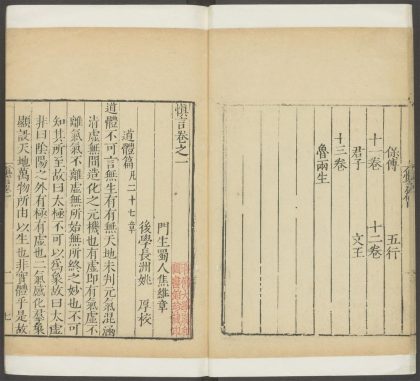 保傅 五行
十一卷 十二卷
君子 文王
十三卷
魯兩生
慎言卷之一
門生蜀人焦維章
後學長洲姚 厚校
道體篇凡二十七章
道體不可言無生有有無天地未判元氣混涵
清虛無間造化之元機也有虛即有氣虛不
離氣氣不離虛無所始無所終之妙也不可
知其所至故曰太極不可以為象故曰太虛
非曰陰陽之外有極有虛也二氣感化羣象
顯設天地萬物所由以生也非實體乎是故